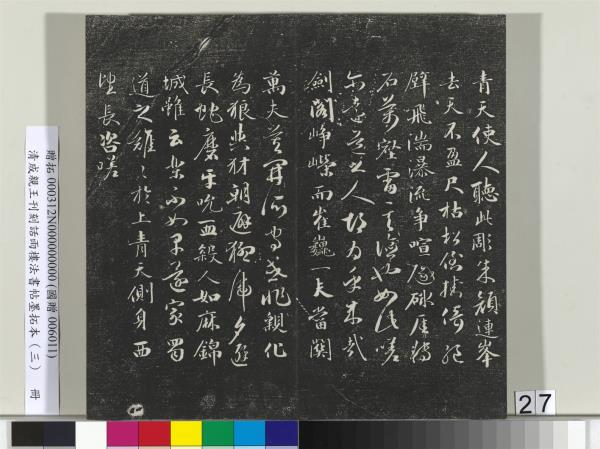 青天使人聽此彫朱顏連峯
去天不盈尺枯松倒挂倚絕
壁飛湍瀑流爭喧豗砯厓轉
石萬壑雷其險也如此嗟
爾遠道之人胡為乎來哉
劍閣崢嶸而崔巍一夫當關
萬夫莫開所守或匪親化
為狼與豺朝避猛虎夕避
長蛇磨牙吮血殺人如麻錦
城雖云樂不如早還家蜀
道之難〻於上青天側身西
望長咨嗟
贈拓 000312N000000000 (國贈 006011)
清成親王刊刻話雨樓法書帖墨拓本（三） 冊
27